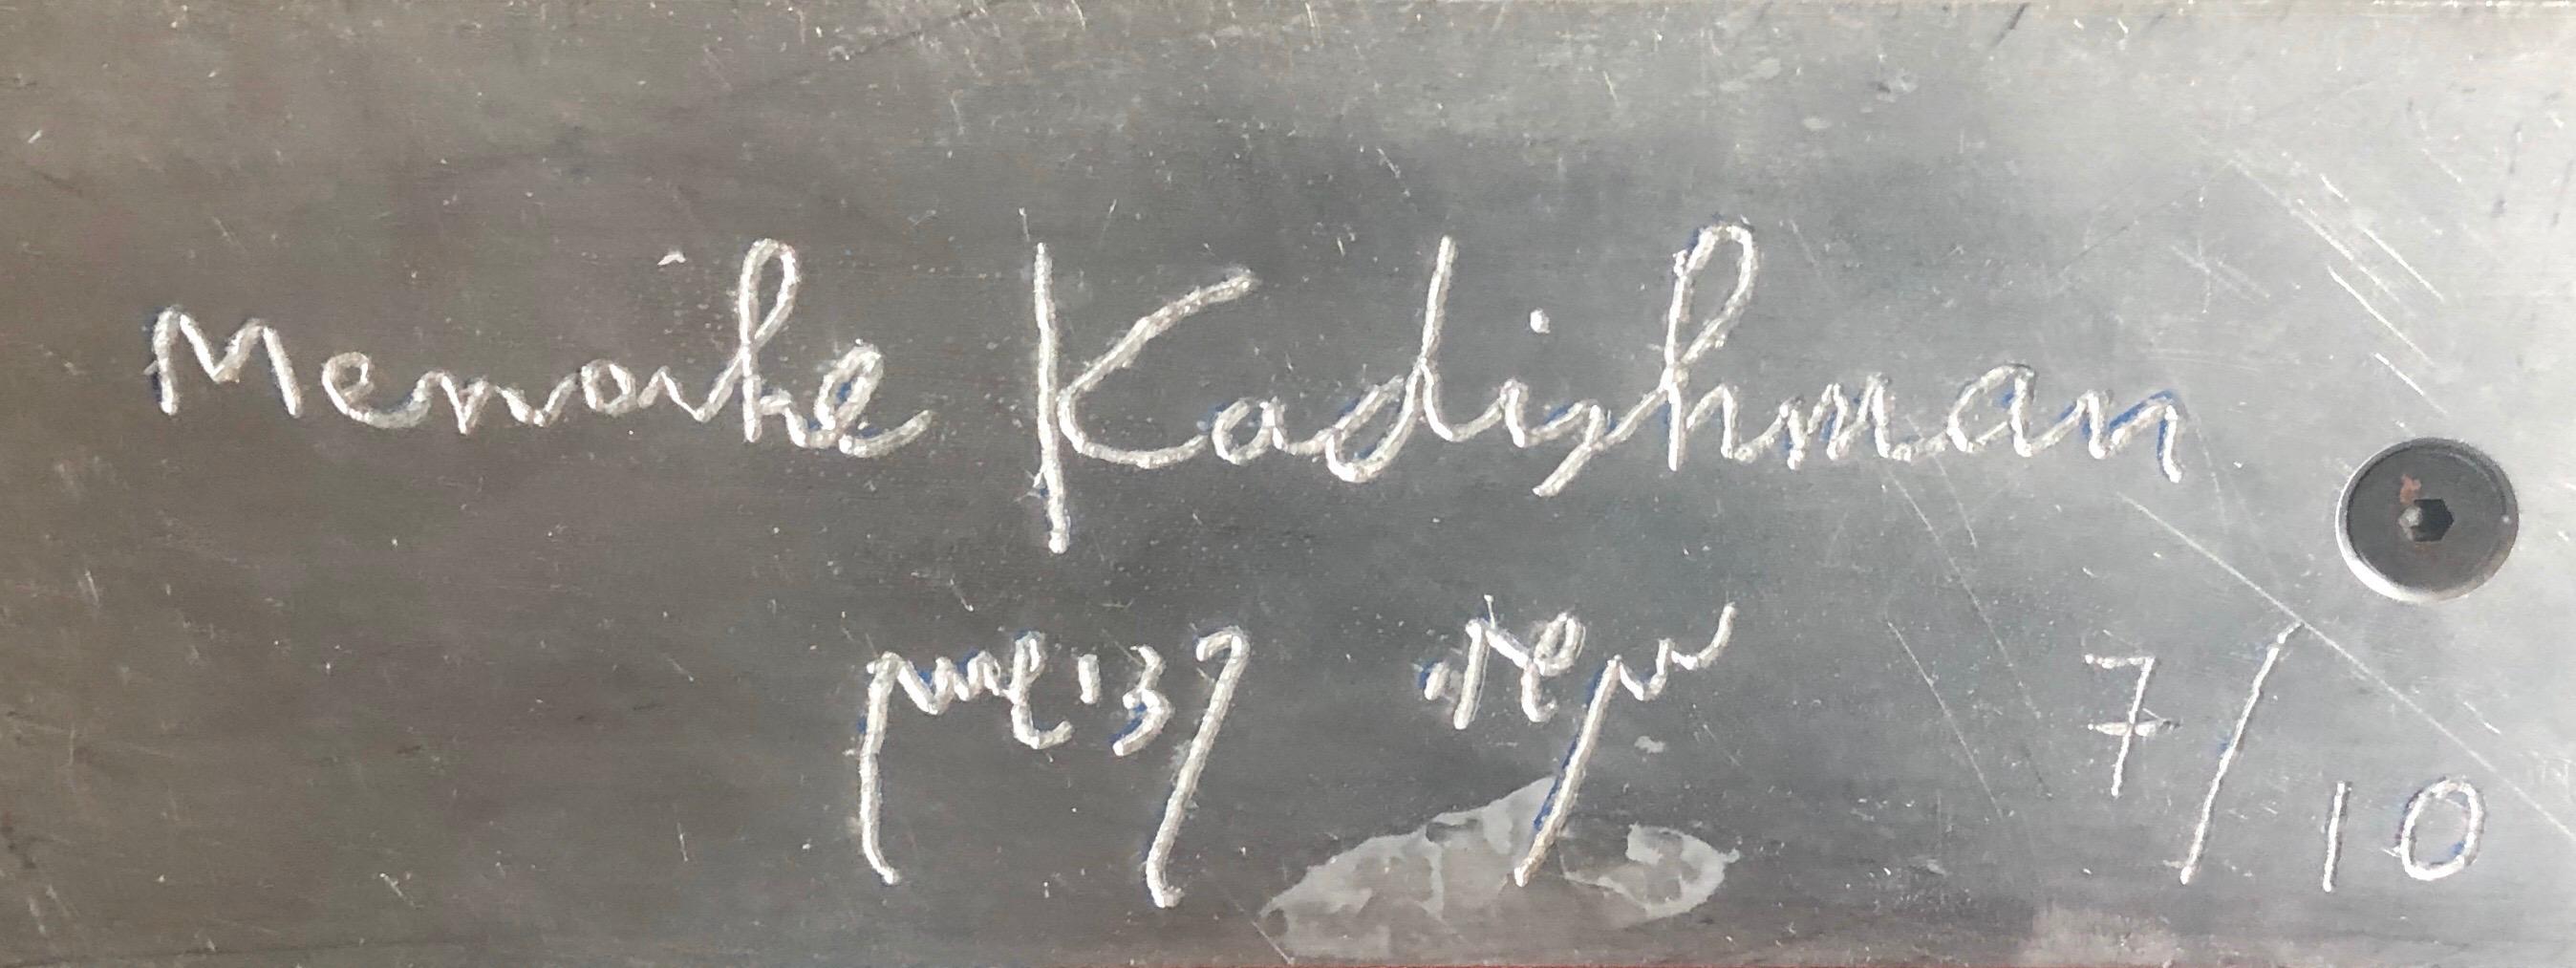 Menashe Kadishman
מנשה קדישמן
7/10